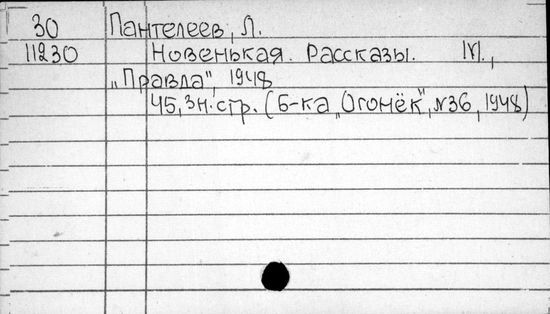 30 Пантелеев, Л.
11230 Новенькая. Рассказы. М.,
„Правда", 1948
45, 3 н. стр. (Б-ка „Огонёк", №36, 1948)